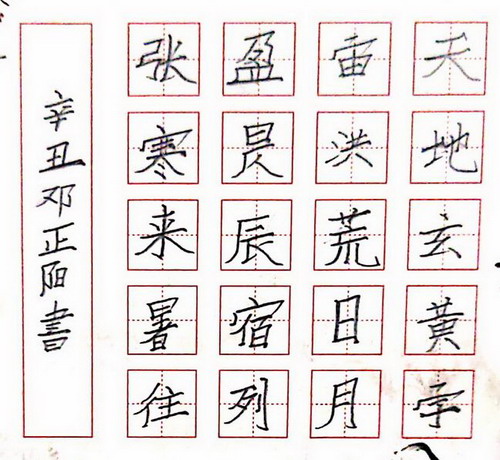 天地玄黄宇
宙洪荒日月
盈昃辰宿列
张寒来暑往
辛丑邓正阳書